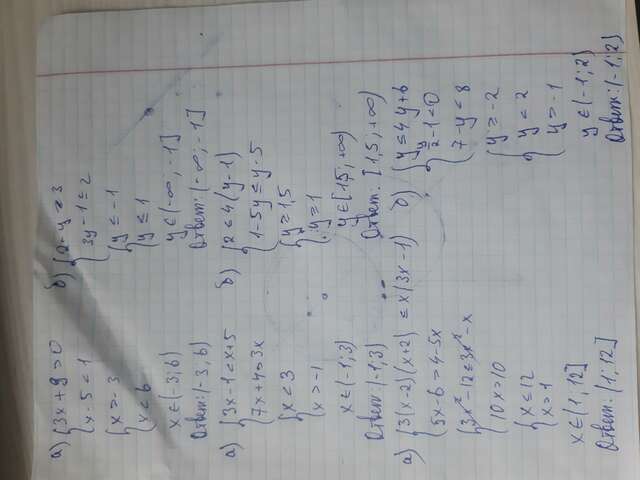 а) {3x + 9 > 0
{x - 5 < 1
{x > -3
{x < 6
x ∈ (-3; 6)
Ответ: (-3; 6)
б) {2 - y ≥ 3
{3y - 1 ≤ 2
{y ≤ -1
{y ≤ 1
y ∈ (-∞; -1]
Ответ: (-∞; -1]
а) {3x - 1 < x + 5
{7x + 4 > 3x
{x < 3
{x > -1
x ∈ (-1; 3)
Ответ: (-1; 3)
б) {2 ≤ 4(y - 1)
{1 - 5y ≤ y - 5
{y ≥ 1,5
{y ≥ 1
y ∈ [1,5; +∞)
Ответ: [1,5; +∞)
а) {3(x - 2)(x + 2) ≤ x(3x - 1)
{5x - 6 > 4 - 5x
{3x² - 12 ≤ 3x² - x
{10x > 10
{x ≤ 12
{x > 1
x ∈ (1, 12]
Ответ: (1; 12]
б) {y ≤ 4y + 6
{y/2 - 1 < 0
{7 - y < 8
{y ≥ -2
{y < 2
{y > -1
y ∈ (-1; 2)
Ответ: (-1; 2)